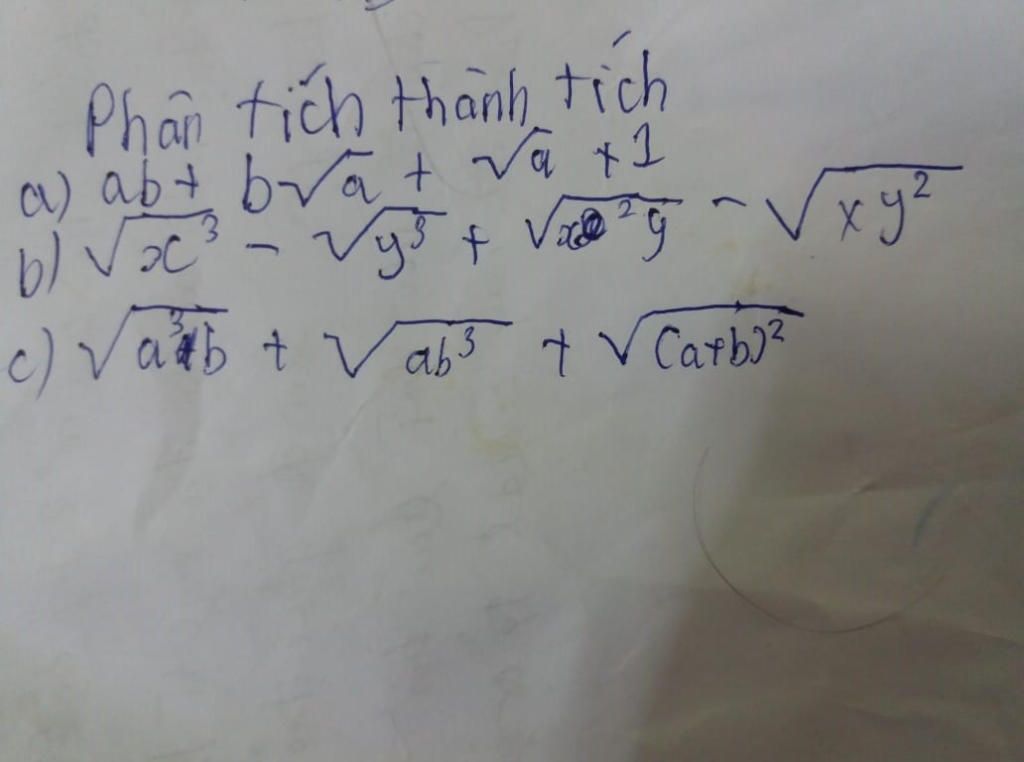 Phân tích thành tích
a) ab + b√a + √a + 1
b) √x³ - √y³ + √x²y - √xy²
c) √a³b + √ab³ + √(a+b)²